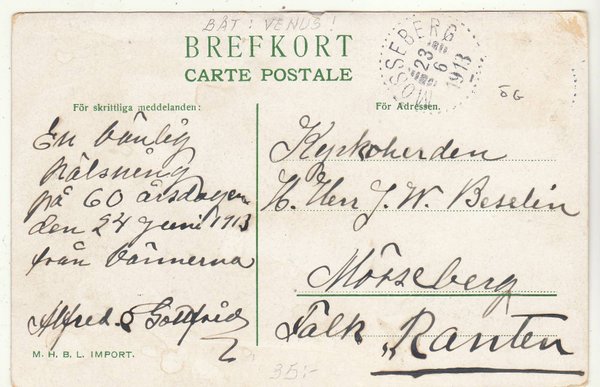 BÅT: VENUS!
BREFKORT
CARTE POSTALE
MÖSSEBERG
23
6
1913
ÖG
För skrittliga meddelanden:
För Adressen.
En vänlig
hälsning
på 60 årsdagen
den 24 juni 1913
från vännerna
Alfred & Gottfrid
Kyrkoherden
H. Herr J. W. Beselin
Mörseberg
Falk "Ranten
M. H. B. L. IMPORT.
35:-